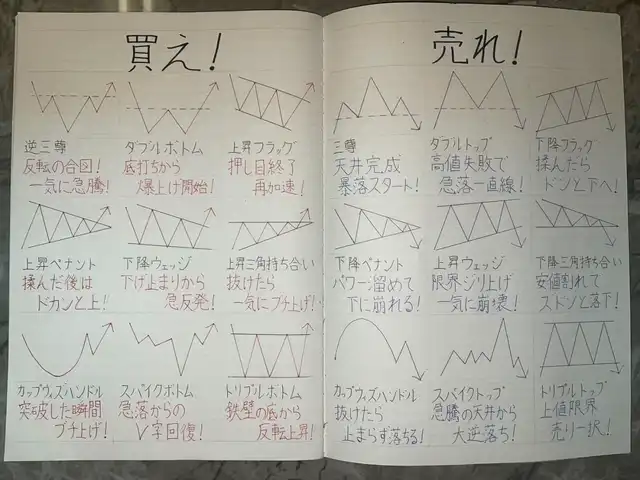 買え!
逆三尊
反転の合図!
一気に急騰!
ダブルボトム
底打ちから
爆上げ開始!
上昇フラッグ
押し目終了
再加速!
上昇ペナント
揉んだ後は
ドカンと上!
下降ウェッジ
下げ止まりから
急反発!
上昇三角持ち合い
抜けたら
一気にブチ上げ!
カップウィズハンドル
突破した瞬間
ブチ上げ!
スパイクボトム
急落からの
V字回復!
トリプルボトム
鉄壁の底から
反転上昇!
売れ!
三尊
天井完成
暴落スタート!
ダブルトップ
高値失敗で
急落一直線!
下降フラッグ
揉んだら
ドンと下へ!
下降ペナント
パワー溜めて
下に崩れる!
上昇ウェッジ
限界ジリ上げ
一気に崩壊!
下降三角持ち合い
安値割れて
ストンと落下!
カップウィズハンドル
抜けたら
止まらず落ちる!
スパイクトップ
急騰の天井から
大逆落ち!
トリプルトップ
上値限界
売り一択!